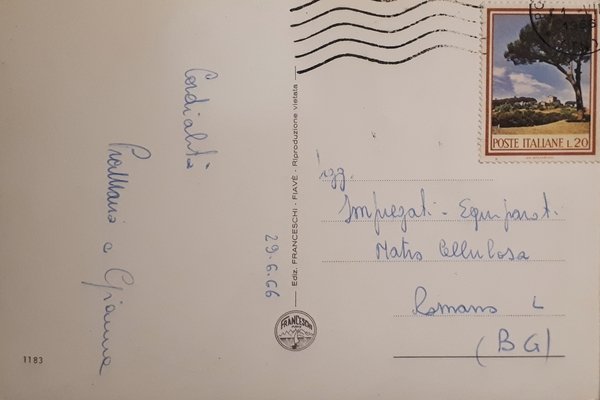 Cordialità
e Gianna
29.6.66
Ediz. FRANCESCHI - FIAVÈ - Riproduzione vietata
FRANCESCHI
1183
POSTE ITALIANE L.20
Sigg.
Impiegati - Equiparati
Matis Cellulosa
Romano L
(BG)